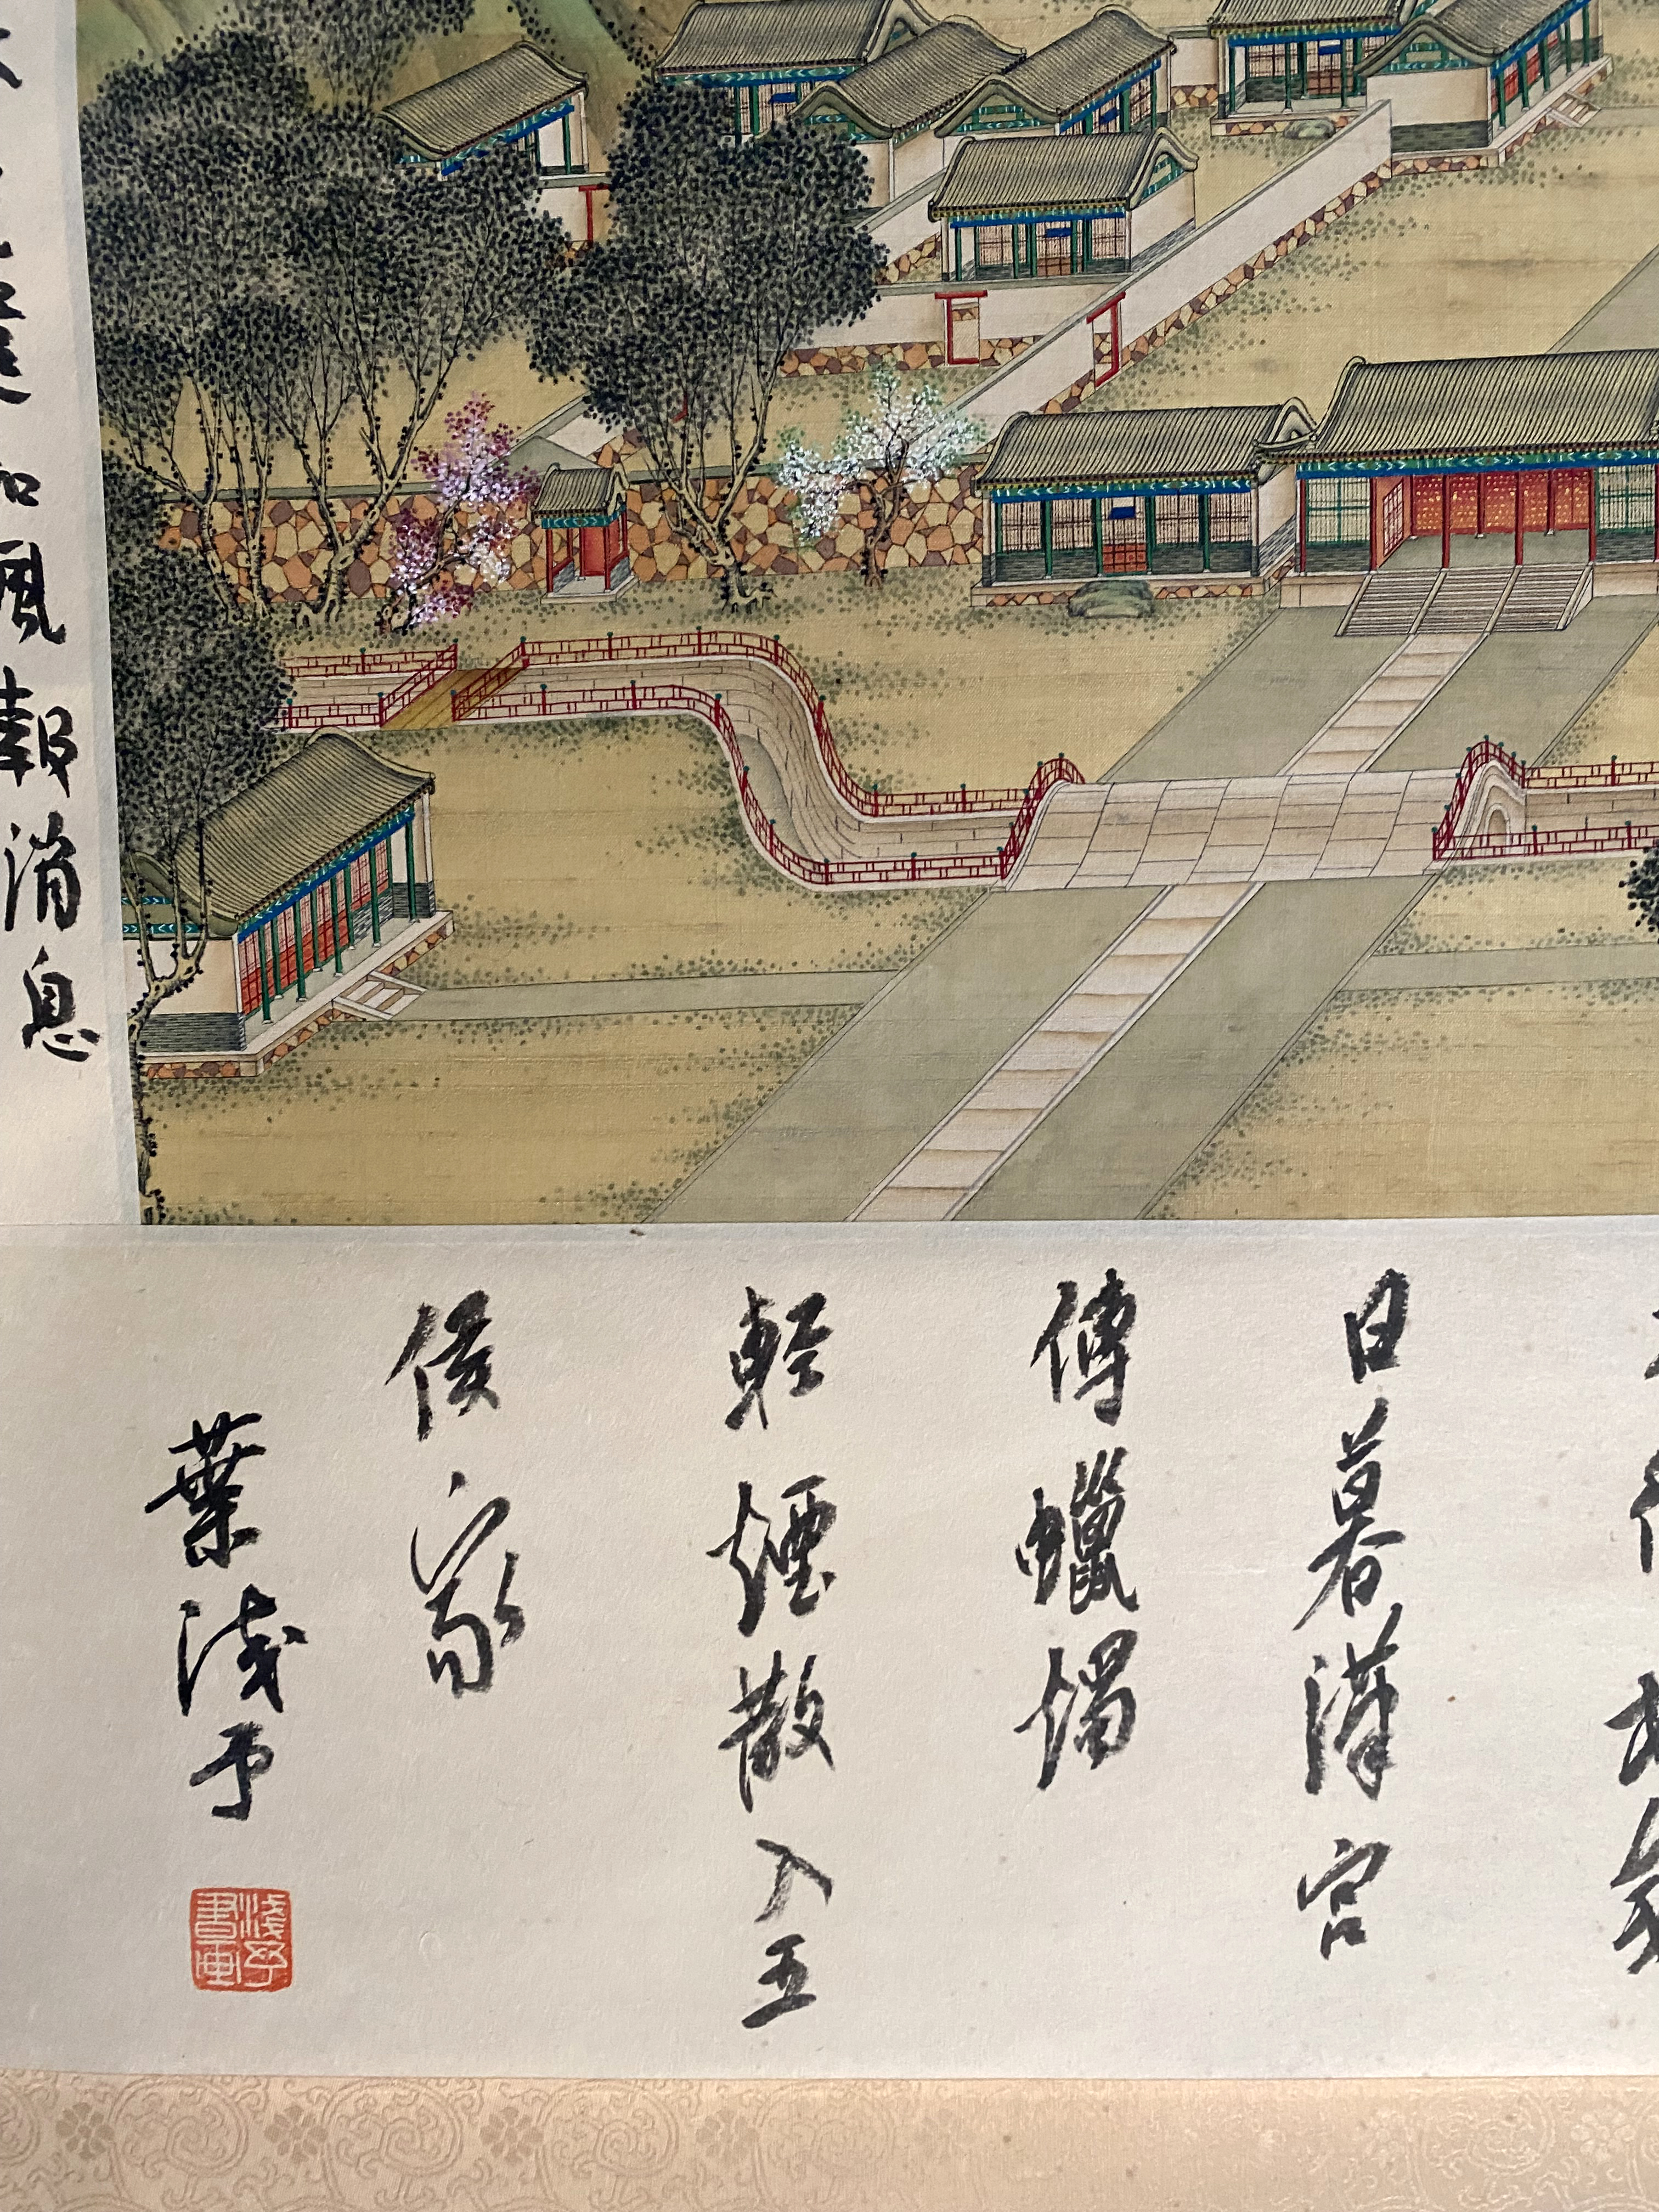 日暮漢宮
傳蠟燭
輕煙散入五
侯家
葉淺予
淺予書畫
和風報消息